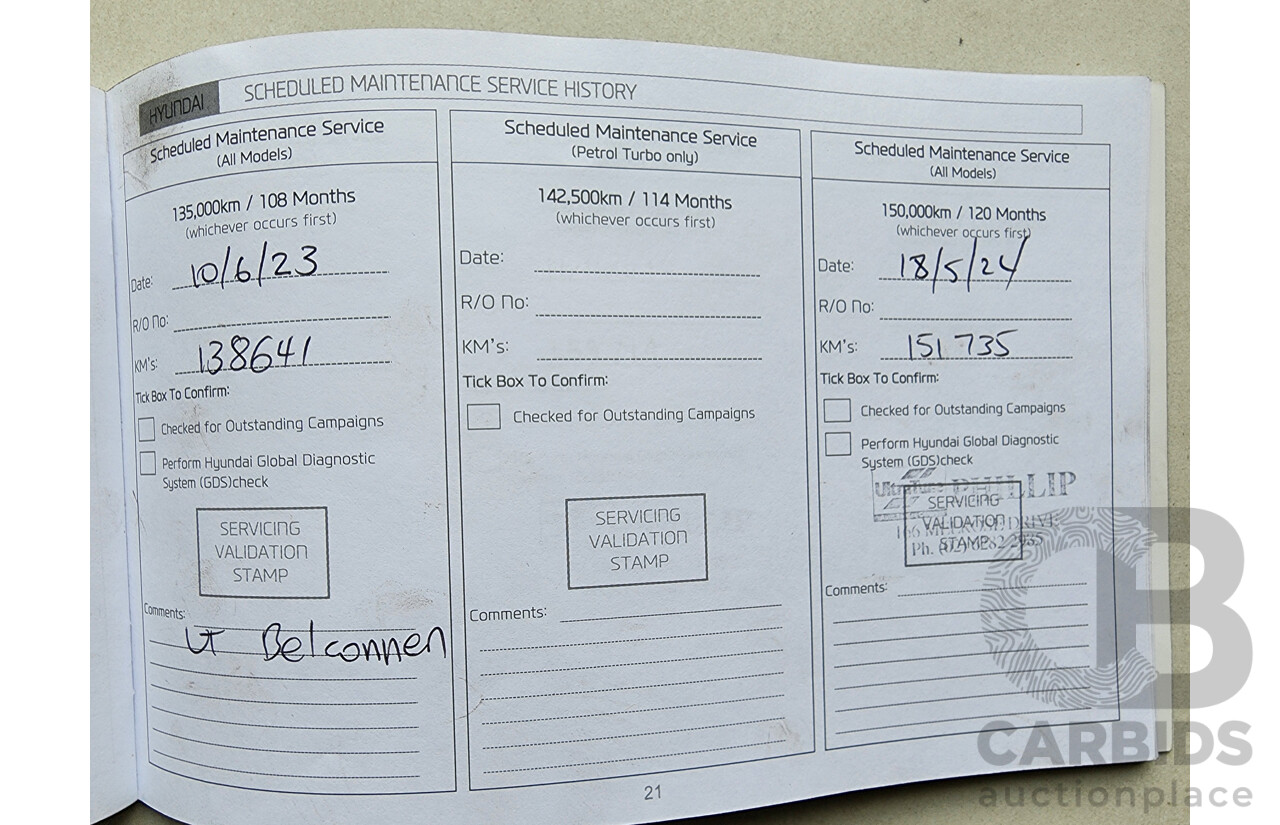 HYUNDAI
SCHEDULED MAINTENANCE SERVICE HISTORY
Scheduled Maintenance Service
(All Models)
135,000km / 108 Months
(whichever occurs first)
Date: 10/6/23
R/O No:
KM's: 138641
Tick Box To Confirm:
Checked for Outstanding Campaigns
Perform Hyundai Global Diagnostic
System (GDS)check
SERVICING
VALIDATION
STAMP
Comments:
UT Belconnen
Scheduled Maintenance Service
(Petrol Turbo only)
142,500km / 114 Months
(whichever occurs first)
Date:
R/O No:
KM's:
Tick Box To Confirm:
Checked for Outstanding Campaigns
SERVICING
VALIDATION
STAMP
Comments:
Scheduled Maintenance Service
(All Models)
150,000km / 120 Months
(whichever occurs first)
Date: 18/5/24
R/O No:
KM's: 151 735
Tick Box To Confirm:
Checked for Outstanding Campaigns
Perform Hyundai Global Diagnostic
System (GDS)check
UltraTune PHILLIP
SERVICING
VALIDATION
STAMP
DRIVE
Ph.
Comments:
21
CB
CARBIDS
auctionplace